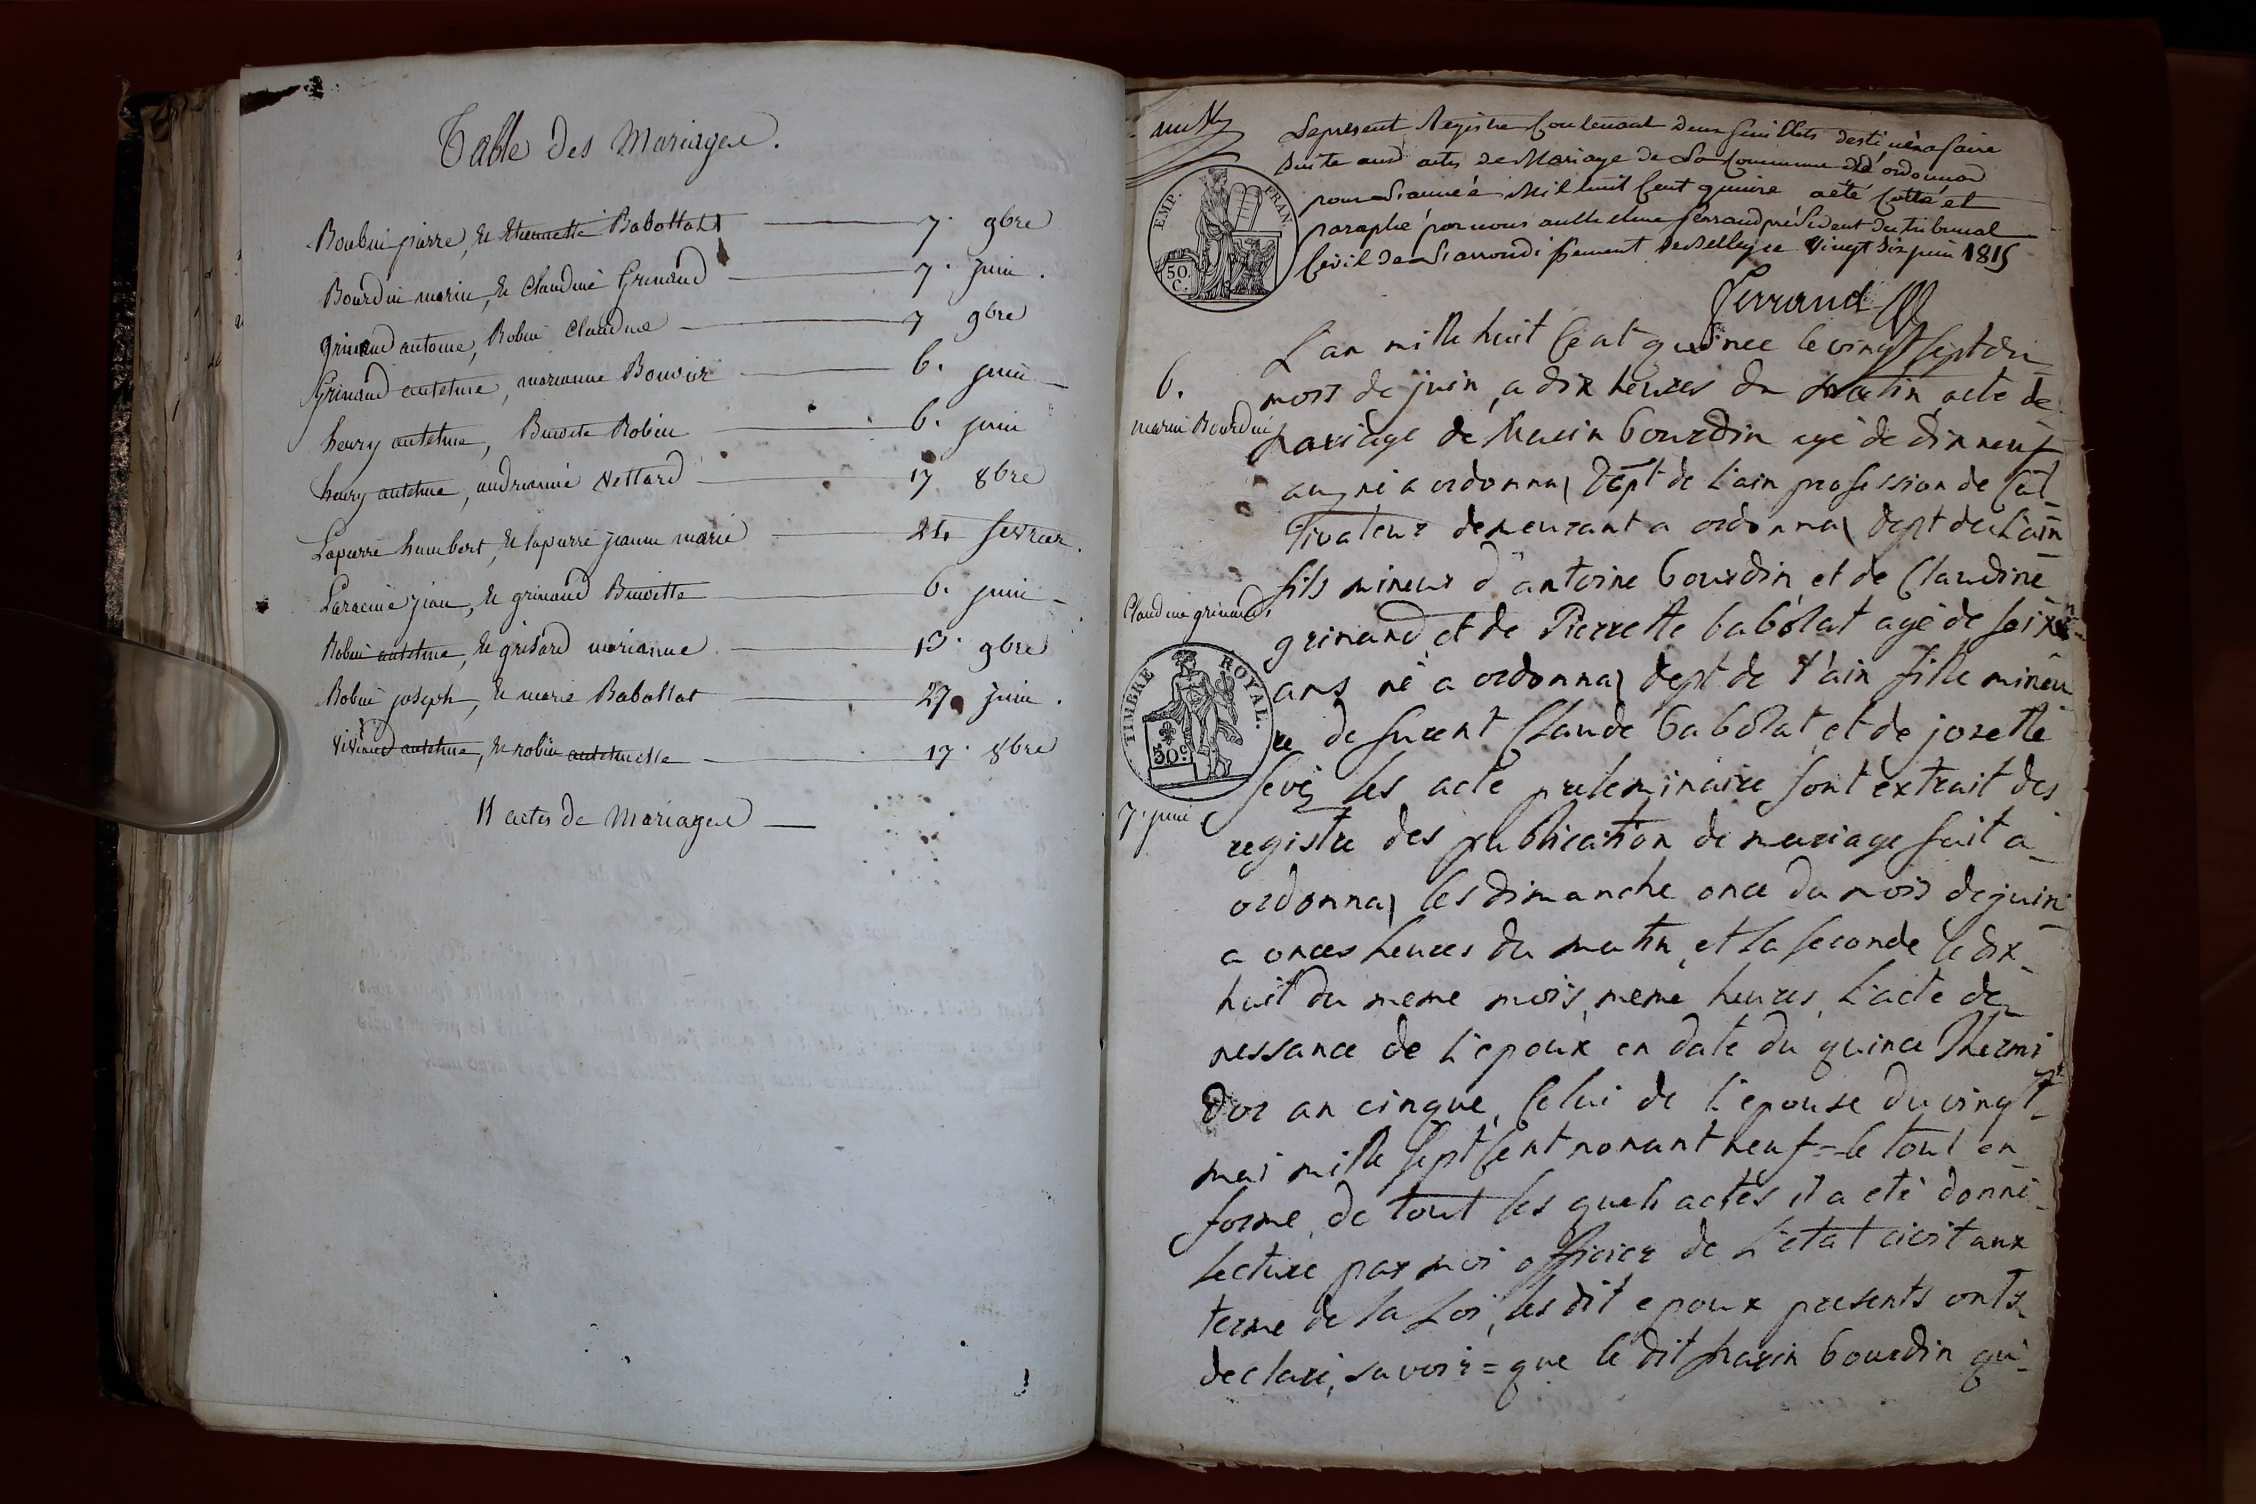 Table des Mariages.
Boubin pierre, et Etiennette Babollat 7. 9bre
Bourdin marin, et Claudine Grinand 7. juin.
grinand antoine, Robin Claudine 7 9bre
Grinand antelme, marianne Bouvier 6. juin
henry antelme, Benoite Robin 6. juin
henry antelme, andrianne Vettard 17 8bre
Lapierre humbert, et lapierre jeanne marie 21. fevrier.
Laracine jean, et grinand Benoitte 6. juin
Robin antelme, et grisard marianne 15. 9bre
Robin joseph, et marie Babollat 27. juin.
Viviand antelme, et robin antelmette 17. 8bre
11 actes de Mariages
Le present Registre Contenant deux feuillets destiné à faire
Suite aux actes de Mariage de La Commune d'ordonnas
pour L'année Mil huit Cent quinze a été Cotté et
paraphé par nous anthelme ferrand président du tribunal
Civil de L'arrondissement de Belley ce vingt six juin 1815
Ferrand
EMP. FRAN.
50. C.
6.
marin Bourdin
Claudine grinand
TIMBRE ROYAL.
50c
7. juin
L'an mille huit Cent quince le vingt sept du
mois de juin, a dix heures du matin, acte de
mariage de Marin bourdin agé de dix neuf
ans né a ordonnas Dept de L'ain profession de Cul
tivateur demeurant a ordonnas dept de L'ain
fils mineur d'antoine bourdin et de Claudine
grinand, et de Pierrette babolat agé de seize
ans né a ordonnas dept de l'ain fille mineu
re de furent Claude babolat, et de josette
les acte preleminaire sont extrait des
registre des publication de mariage fait a
ordonnas les dimanche once du mois de juin
a onces heures du matin, et la seconde le dix
huit du meme mois, meme heures, L'acte de
nessance de L'epoux en date du quince Thermi
dor an cinque, Celui de l'epouse du vingt
mai mille sept Cent nonant neuf = le tout en
forme, de tout les quels actes, il a eté donné
lecture par moi officier de L'etat civit aux
terme de la Loi, les dit epoux presents onts
declaré, savoir = que le dit Marin bourdin qui